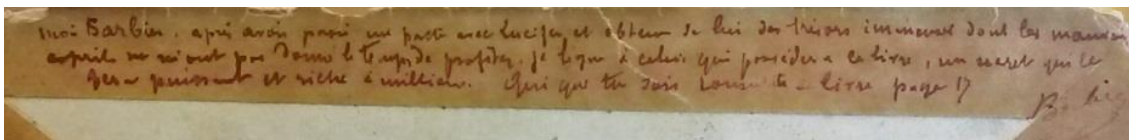 moi Barbier, après avoir passé un pacte avec Lucifer, et obtenu de lui des trésors immenses dont les mauvais
esprits ne m'ont pas donné le temps de profiter, je lègue à celui qui possédera ce livre, un secret qui le
fera puissant et riche à millions. Qui que tu sois ce livre page 17